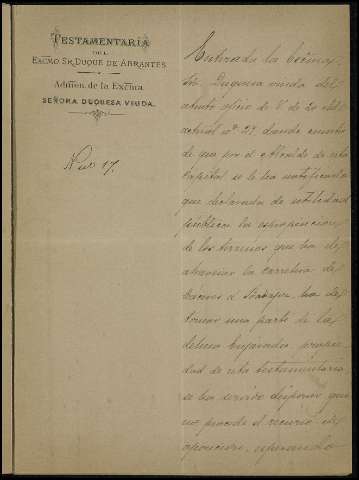 TESTAMENTARÍA
DEL
EXCMO. SR. DUQUE DE ABRANTES
Admón. de la Excma.
SEÑORA DUQUESA VIUDA.
Num 17.
Enterada la Excma
Sra. Duquesa viuda del
atento oficio de V. de 20 del
actual nº 27 dando cuenta
de que por el Alcalde de esta
Capital se le ha notificado
que declarada de utilidad
pública la expropiacion
de los terrenos que ha de
atravesar la carretera de
Cáceres á Badajoz ha de
tomar una parte de la
dehesa propie
dad de esta testamentaría
se ha servido disponer que
no procede el recurso de
oposicion, esperando